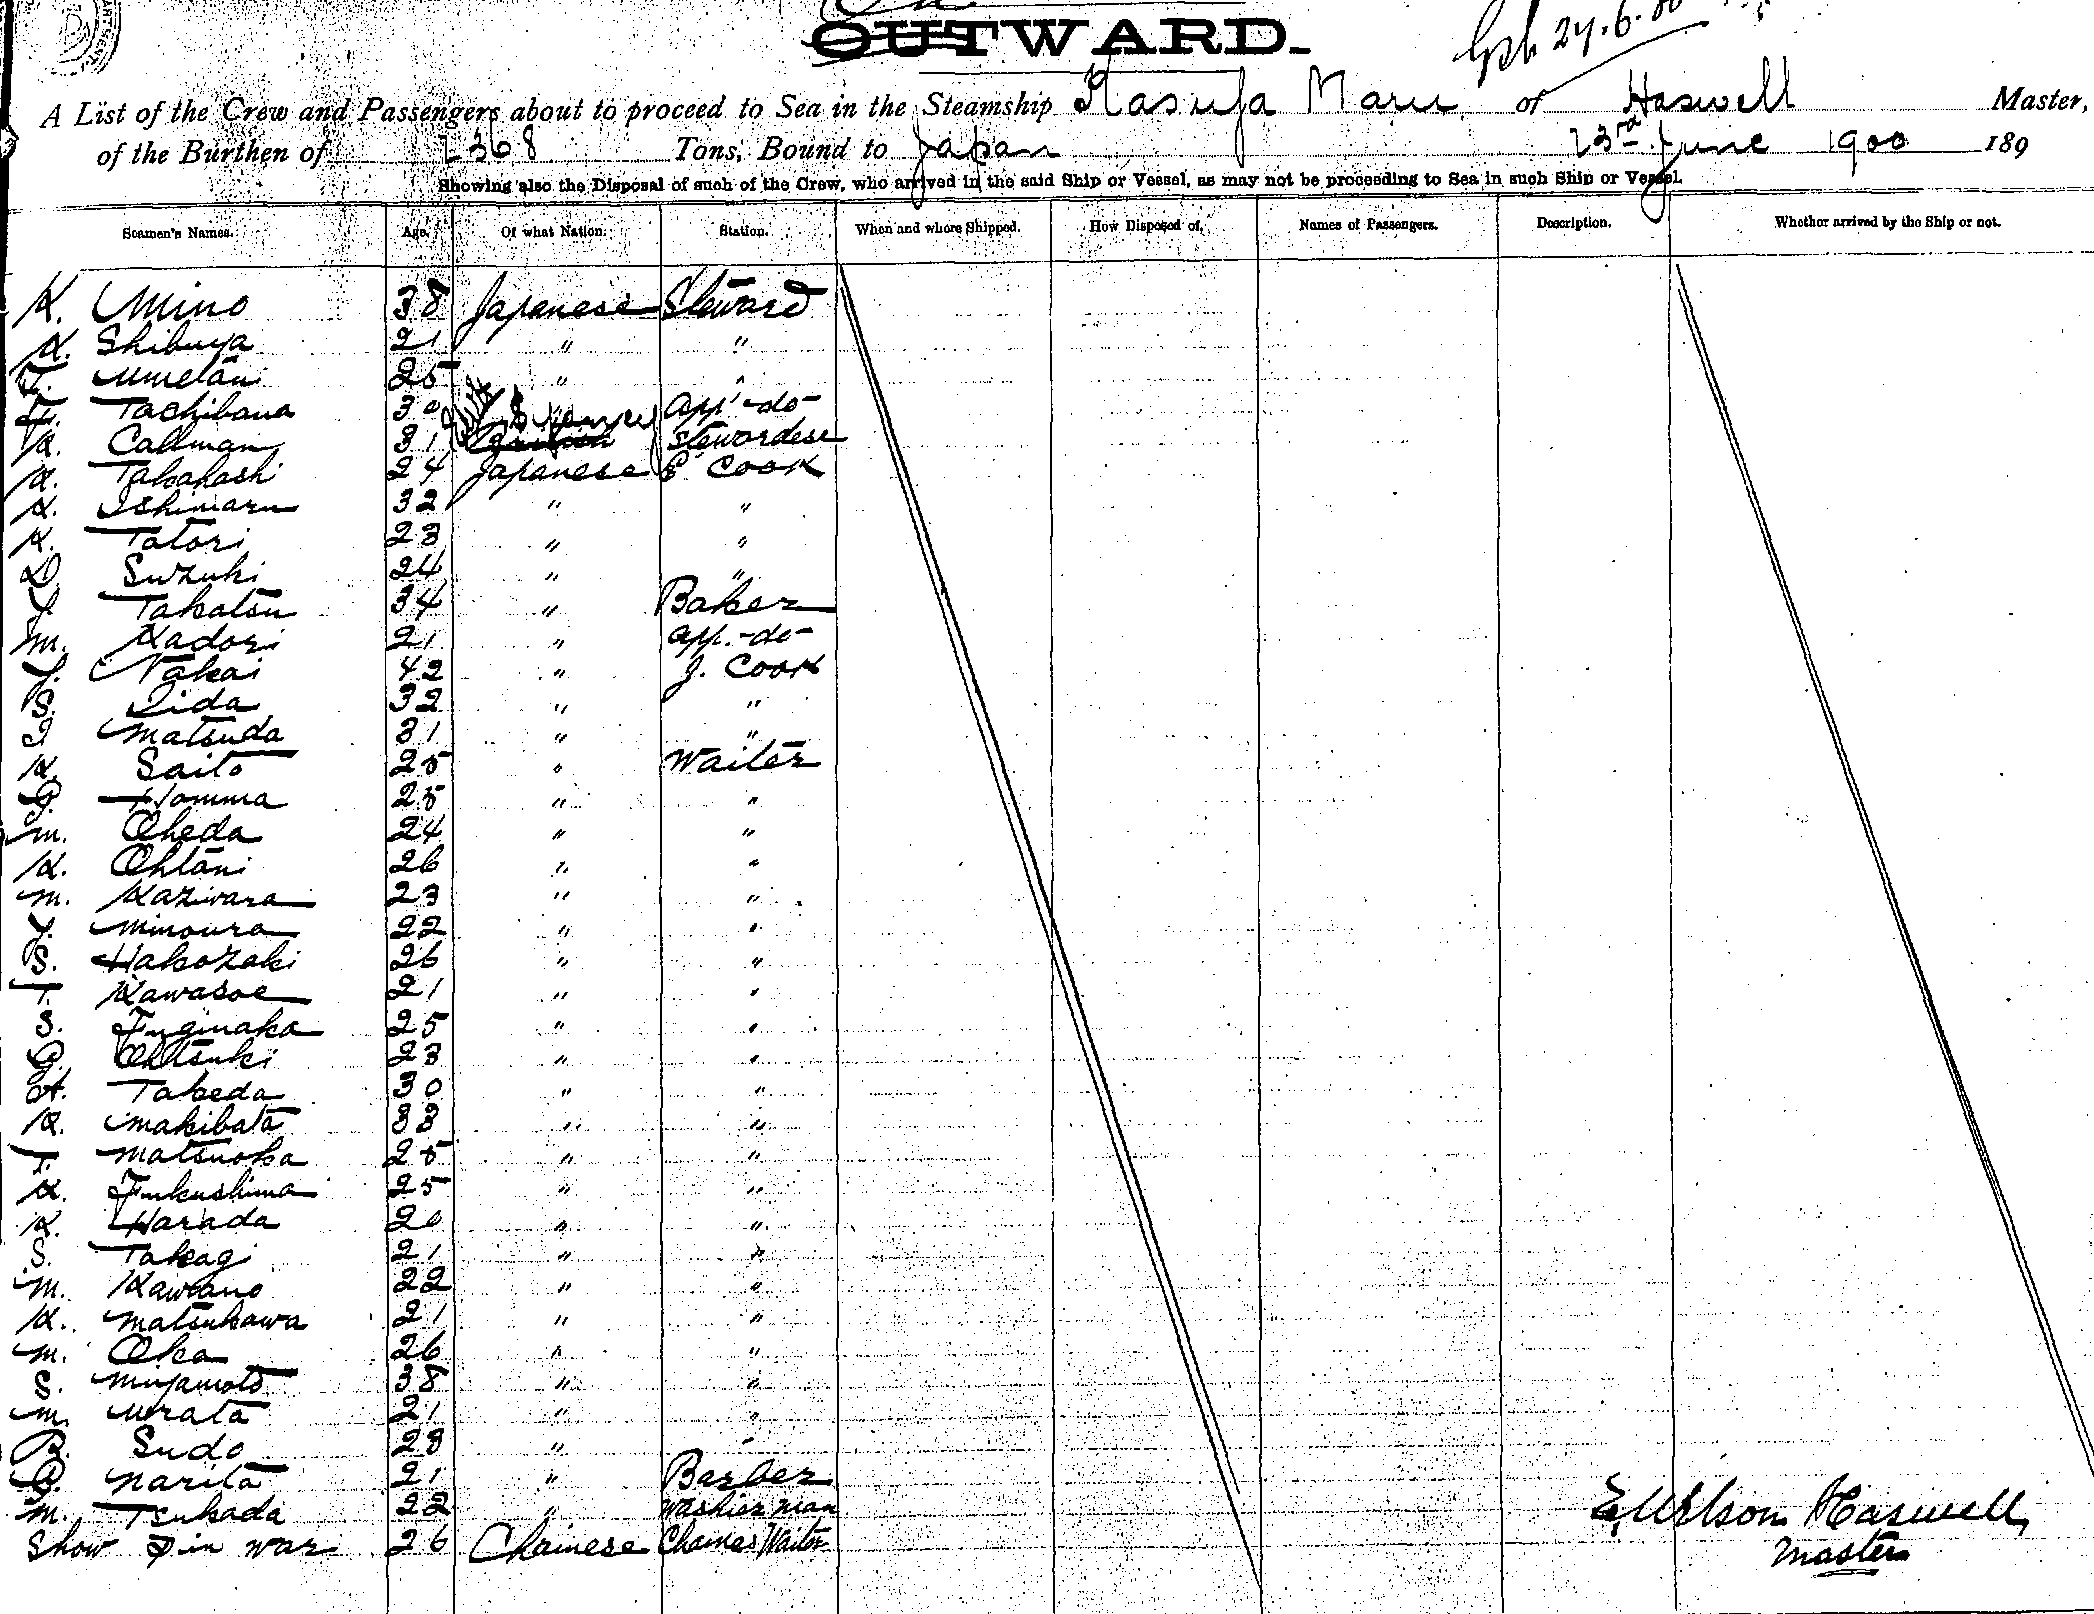 OUTWARD.
24.6.00
A List of the Crew and Passengers about to proceed to Sea in the Steamship Kasuga Maru of Haswell Master,
of the Burthen of 2368 Tons, Bound to Japan 23rd June 1900 189
Showing also the Disposal of such of the Crew, who arrived in the said Ship or Vessel, as may not be proceeding to Sea in such Ship or Vessel.
Seamen's Names. Age. Of what Nation. Station. When and where Shipped. How Disposed of. Names of Passengers. Description. Whether arrived by the Ship or not.
K. Mino 38 Japanese Steward
K. Shibuya 21 " "
T. Umetani 25 " "
Tachibana 30 " app -do-
K. Callman 31 Stewardess
K. Takahashi 24 Japanese E Cook
K. Ishimaru 32 " "
K. Tatori 23 " "
D. Suzuki 24 " "
Y. Takatsu 34 " Baker
M. Kadori 21 " app. -do-
Y. Nakai 42 " J. Cook
S. Iida 32 " "
I Matsuda 31 " "
K. Saito 25 " Waiter
G. Homma 25 " "
M. Oheda 24 " "
K. Ohtani 26 " "
M. Kaziwara 23 " "
Y. Minoura 22 " "
S. Hakozaki 26 " "
T. Kawasoe 21 " "
S. Fuginaka 25 " "
G. Ohtsuki 23 " "
H. Takeda 30 " "
K. Makibata 33 " "
T. Matsuoka 25 " "
K. Fukushima 25 " "
K. Harada 20 " "
S. Takagi 21 " "
M. Kawano 22 " "
K. Matsukawa 21 " "
M. Oka 26 " "
S. Miyamoto 38 " "
M. Urata 21 " "
B. Sudo 28 " "
G. Narita 21 " Barber
M. Tsukada 22 " Washier man
Show Pin War 26 Chainese Chaines Waiter
E Wilson Haswell
Master